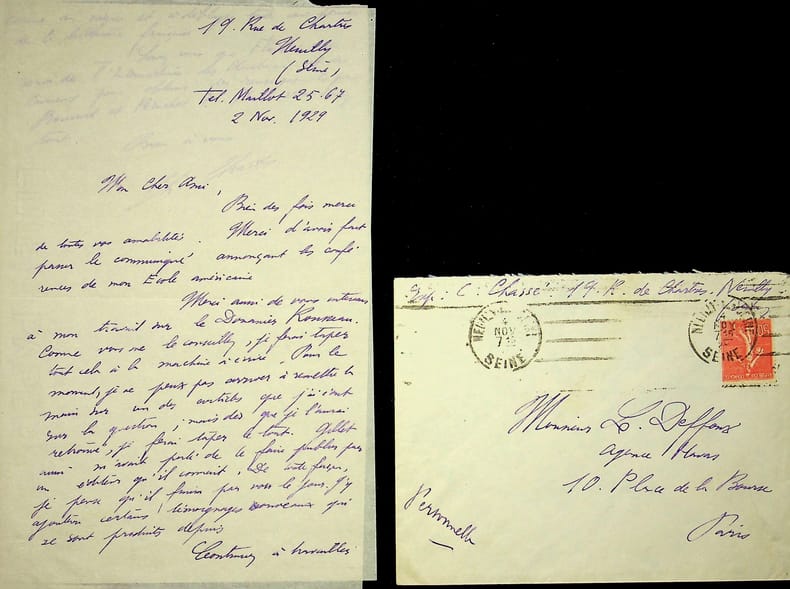 19. Rue de Chartres
Neuilly
(Seine)
Tel. Maillot 25-67
2 Nov. 1929
Mon cher Ami,
Bien des fois merci
de toutes vos amabilités. Merci d'avoir fait
passer le communiqué annonçant les confé
rences de mon Ecole américaine
Merci aussi de vous intéresser
à mon travail sur le Douanier Rousseau.
Comme vous me le conseillez, je ferai taper
tout cela à la machine à écrire. Pour le
moment, je ne peux pas arriver à remettre la
main sur un des articles que j'ai écrit
sur la question; mais dès que je l'aurai
retrouvé, je ferai taper le tout. Gillet
aussi m'avait parlé de le faire publier par
un éditeur qu'il connait. De toute façon,
je pense qu'il finira par voir le jour. J'y
ajouterai certains témoignages nouveaux qui
se sont produits depuis
Continuez à travailler
Exp: C. Chassé. 19 R. de Chartres. Neuilly
NEUILLY
NOV
SEINE
SEINE
Monsieur L. Deffoux
Agence Havas
10. Place de la Bourse
Paris
Personnelle